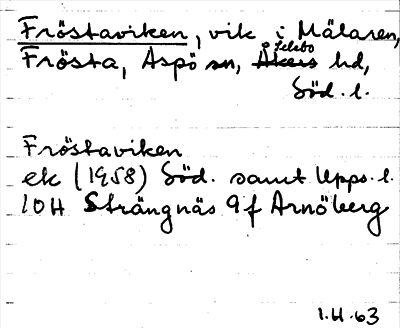 Fröstaviken, vik i Mälaren,
Frösta, Aspö sn, Åkers Selebo hd,
Söd. l.
Fröstaviken
ek (1958) Söd. samt Upps. l.
10H Strängnäs 9f Arnöberg
1.H.63